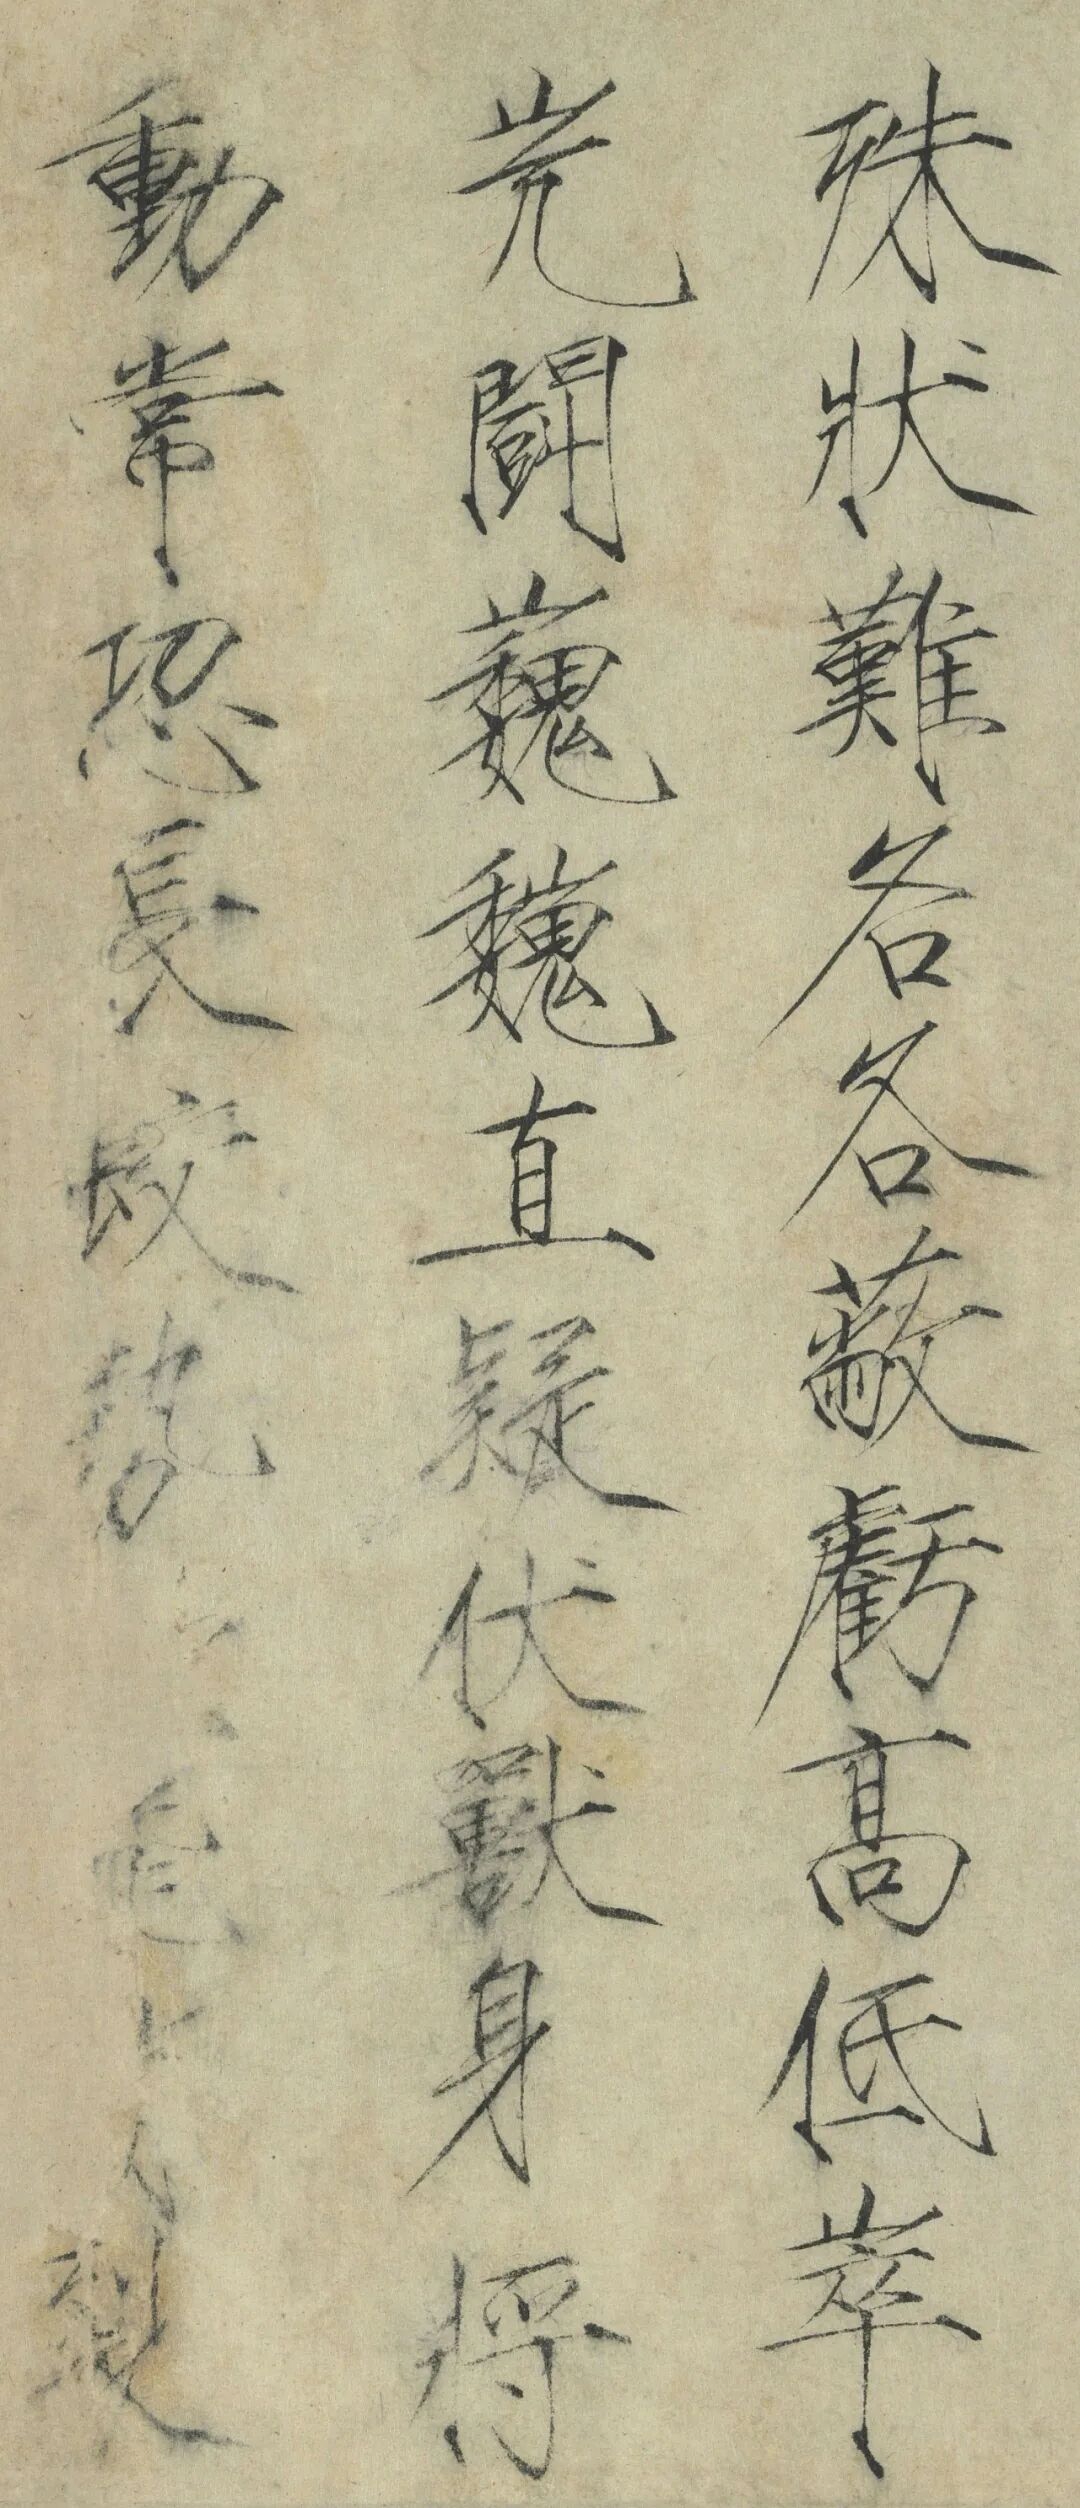 殊狀難名各蔽虧高低崒
岏鬪巍巍直疑伏獸身将
動常恐長蛟勢